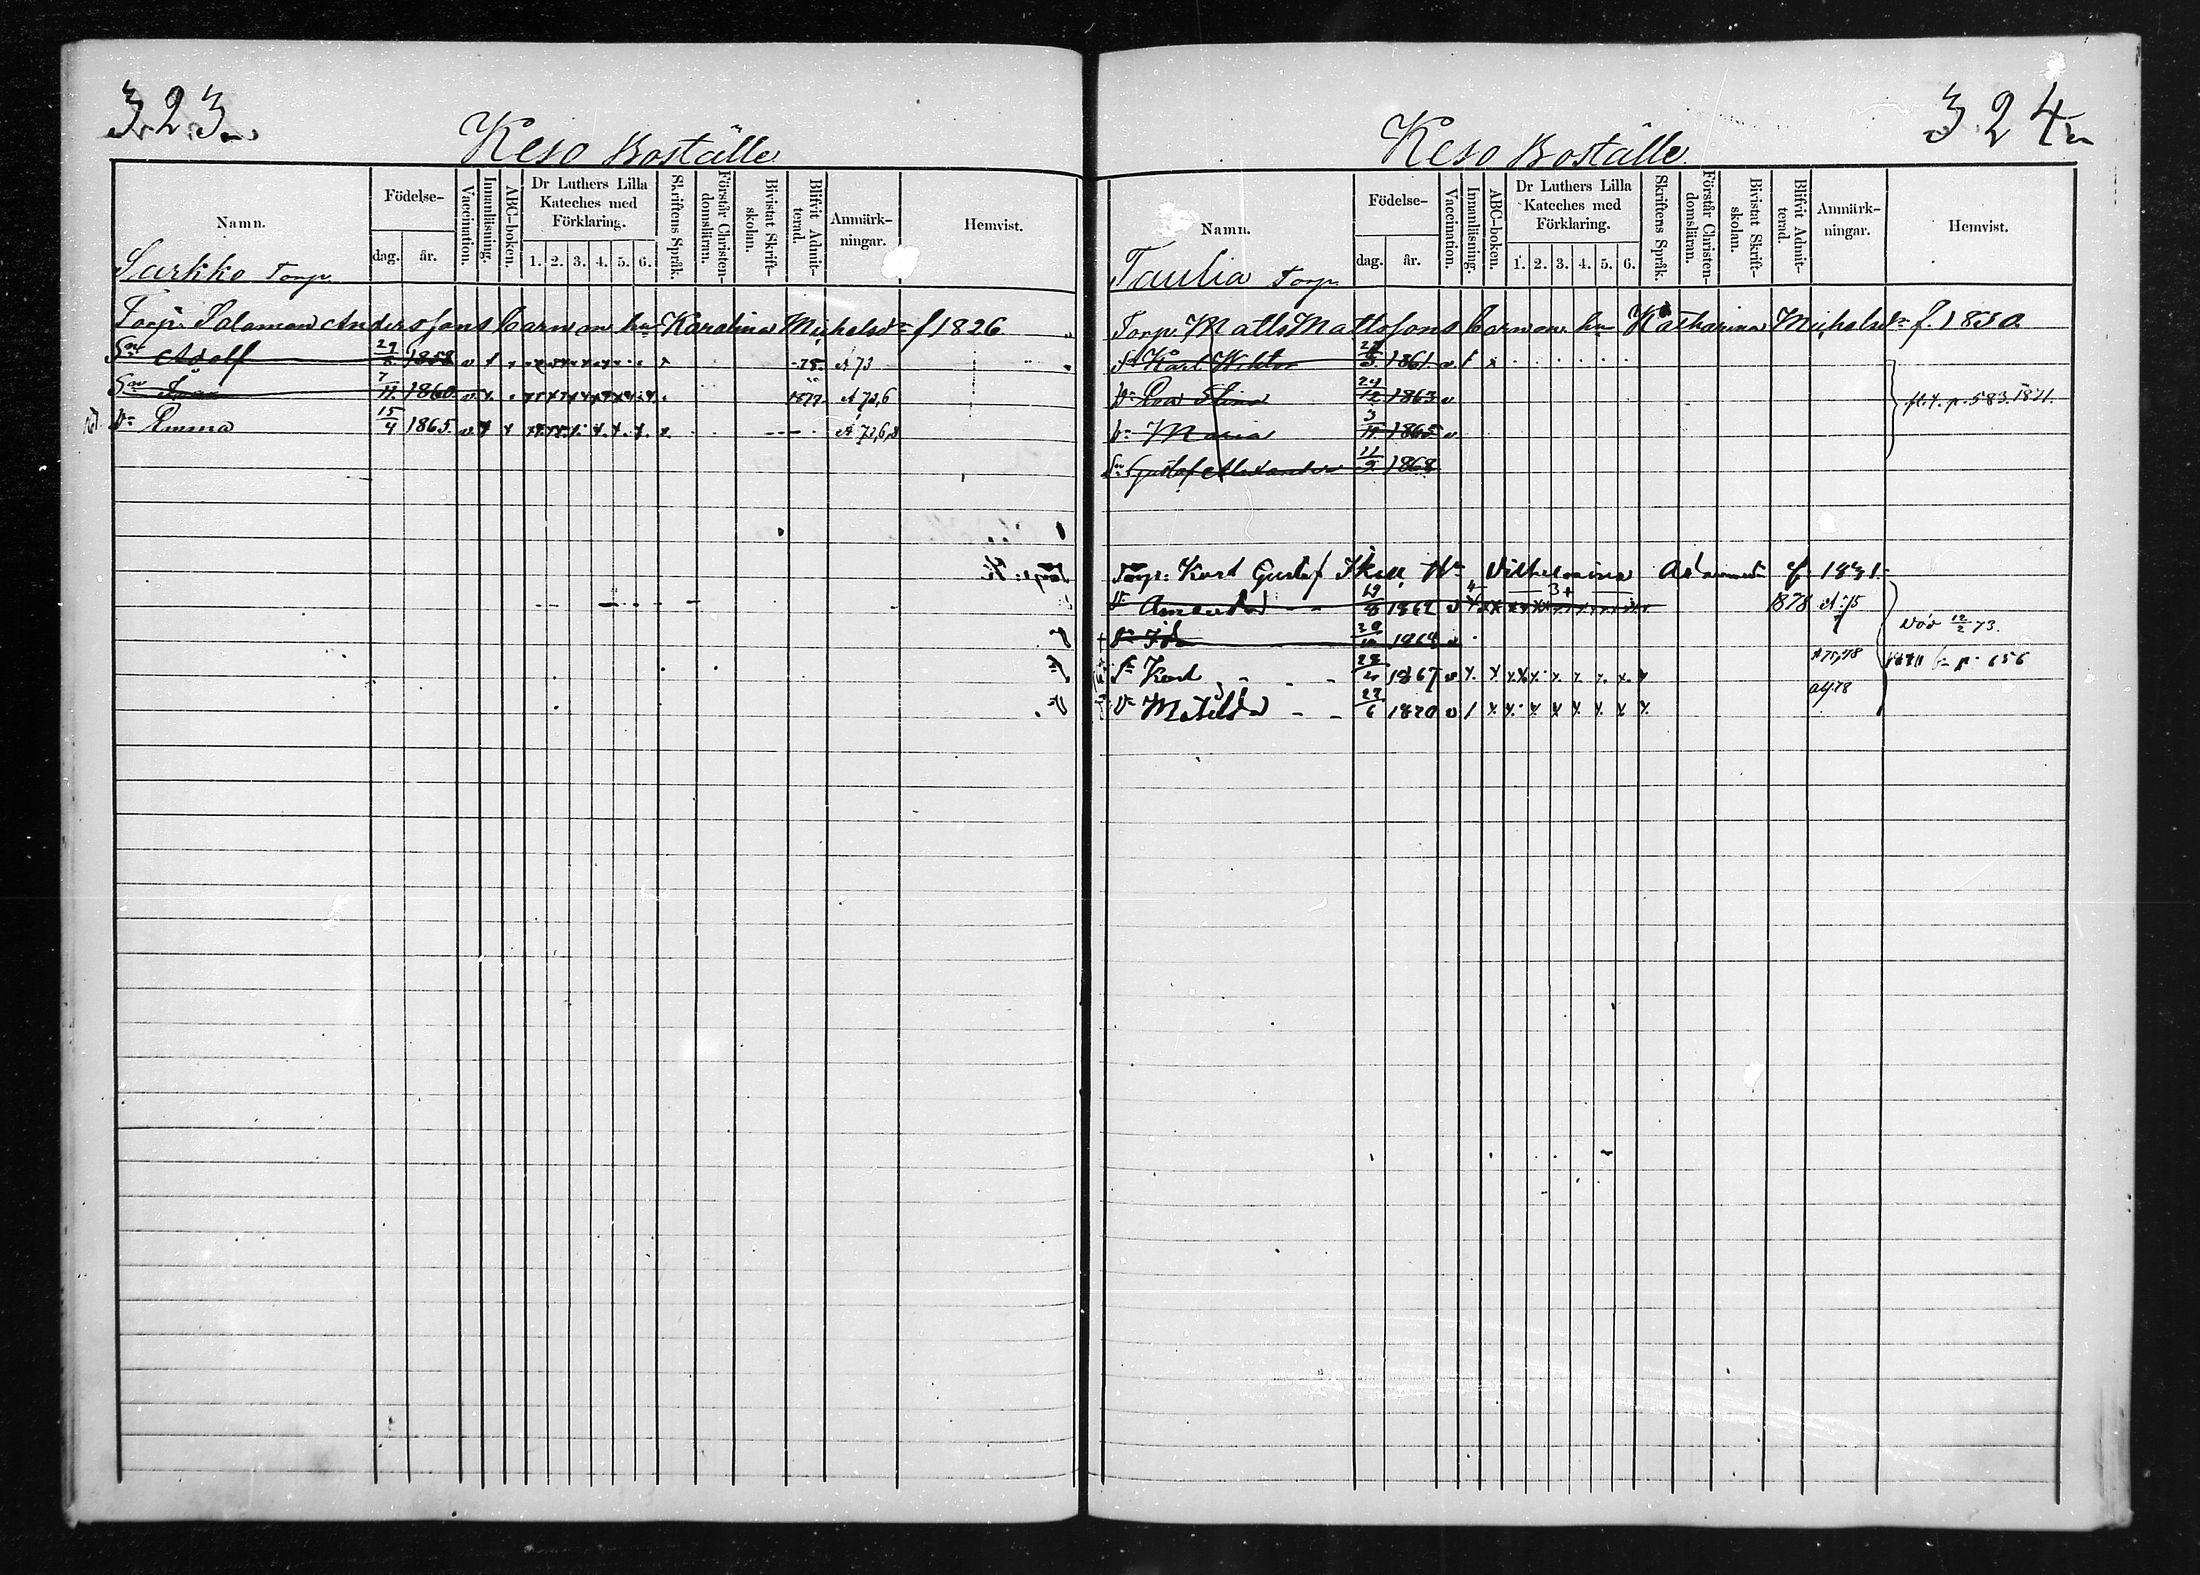 323
Keso Boställe
Namn. Födelse- dag. år. Vaccination. Innanläsning. ABC-boken. Dr Luthers Lilla Kateches med Förklaring. 1. 2. 3. 4. 5. 6. Skriftens Språk. Förstår Christendomsläran. Bivistat Skriftskolan. Blifvit Admitterad. Anmärkningar. Hemvist.
Sarkko Torp.
Torp. Salomon Anderssons barn om hu Karolina Mickelsdr f 1826
Sn Adolf 29/8 1858 v 78. A 73
Sn 7/11 1860 v 1877 A 72,6
Dr Emma 15/4 1865. v A 72,6,8
324
Keso Boställe
Namn. Födelse- dag. år. Vaccination. Innanläsning. ABC-boken. Dr Luthers Lilla Kateches med Förklaring. 1. 2. 3. 4. 5. 6. Skriftens Språk. Förstår Christendomsläran. Bivistat Skriftskolan. Blifvit Admitterad. Anmärkningar. Hemvist.
Taulia Torp.
Torp. Matts Mattssons barn om hu Katharina Mickelsdr f. 1830.
Sn Karl Wiktor 1861. v
Dr Eva Stina 24/12 1863 v
flt. p. 583. 1871.
Dr Maria 3/11 1865 v
Sn Gustaf Alexander 11/9 1868
Torp: Karl Gustaf Hu Vilhelmina Adamsdr f. 1831.
Dr Amanda 1862 v 1878 A 75
Dr Ida 1864 v död 12/2 73.
Sn Karl 1867 v A 75,78 p. 656
Dr Matilda 27/6 1870 v 78